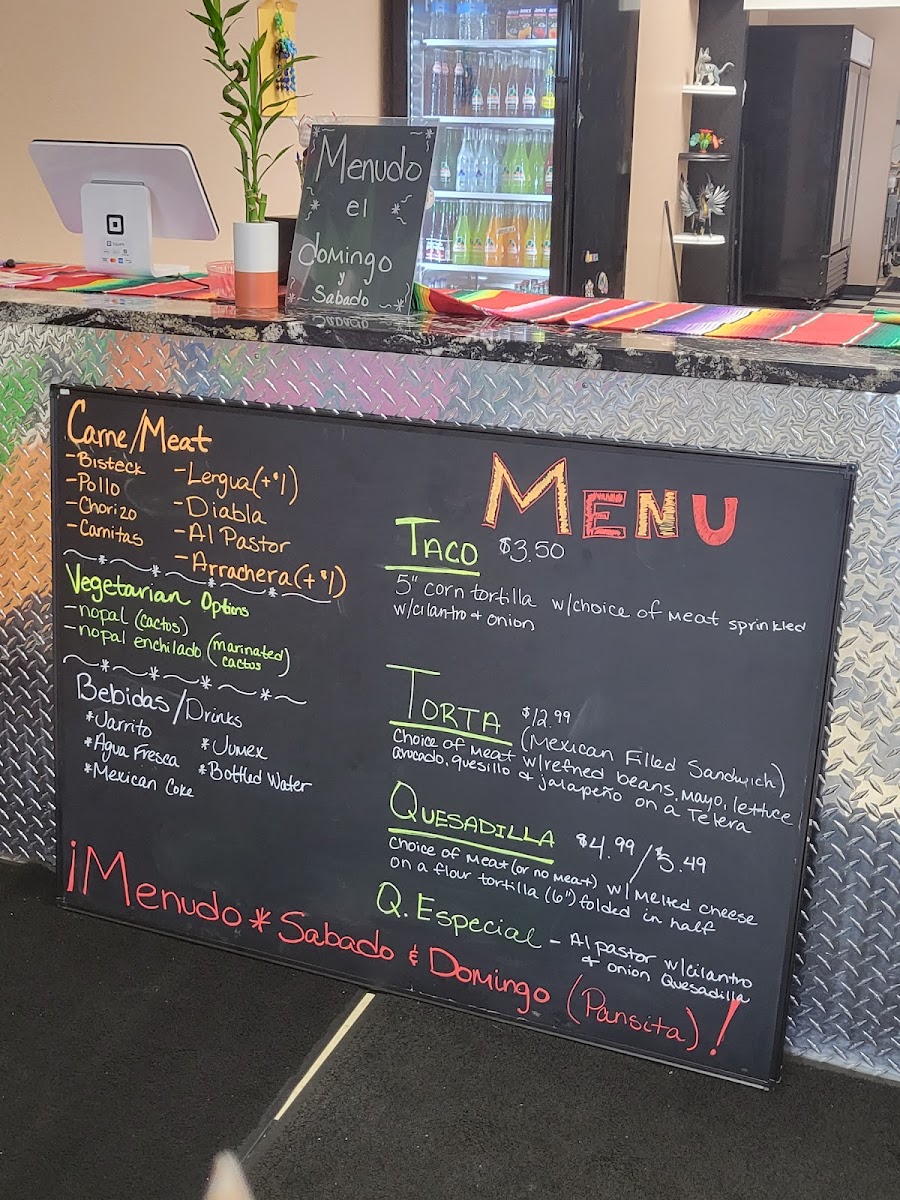 Menudo
el
domingo
y
Sabado
Carne/Meat
-Bisteck
-Pollo
-Chorizo
-Carnitas
-Lengua(+$1)
-Diabla
-Al Pastor
-Arrachera(+$1)
Vegetarian Options
-nopal (cactos)
-nopal enchilado (marinated cactos)
Bebidas/Drinks
*Jarrito
*Agua Fresca
*Mexican Coke
*Jumex
*Bottled Water
MENU
TACO $3.50
5" corn tortilla w/choice of meat sprinkled
w/cilantro & onion
TORTA $12.99
(Mexican Filled Sandwich)
Choice of meat w/refried beans, mayo, lettuce
avocado, quesillo & jalapeño on a Telera
QUESADILLA $4.99/$5.49
Choice of meat (or no meat) w/ melted cheese
on a flour tortilla (6") folded in half
Q. Especial - Al pastor w/cilantro
& onion Quesadilla
¡Menudo * Sabado & Domingo (Pansita)!